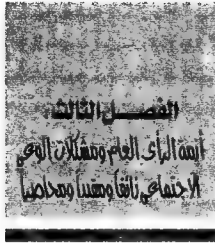 الفصل الثالث
أزمة الرأى العام ومشكلات الوعى
الاجتماعى زائفاً ومغيباً ومحاصراً